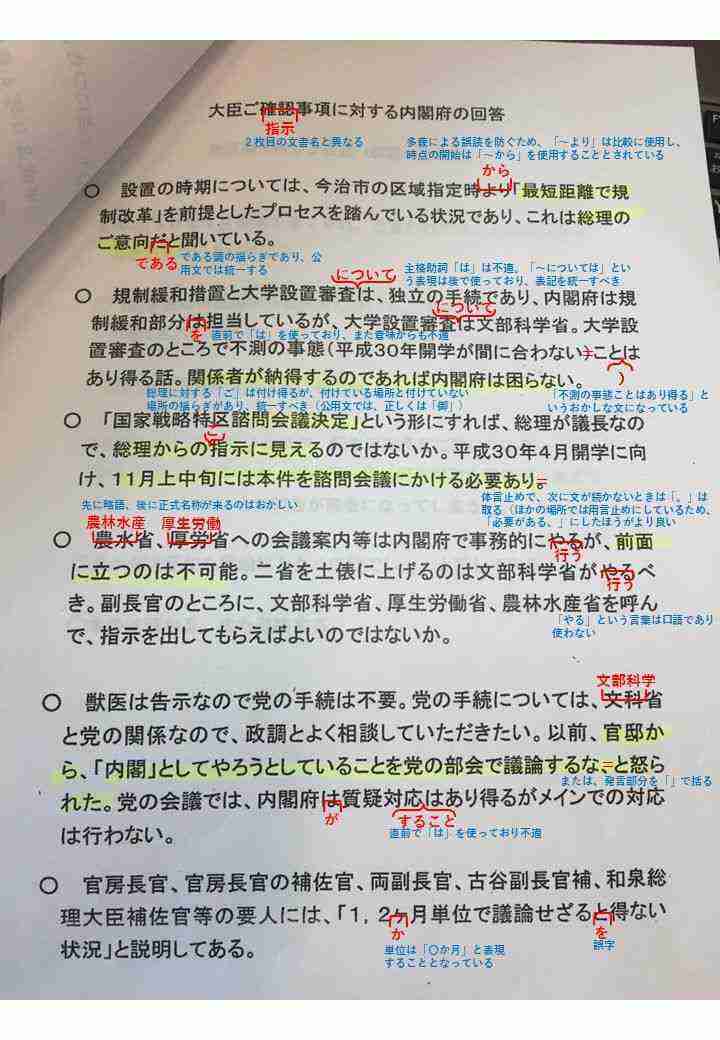 大臣ご確認事項に対する内閣府の回答
指示
２枚目の文書名と異なる
多義による誤読を防ぐため、「～より」は比較に使用し、
時点の開始は「～から」を使用することとされている
から
○　設置の時期については、今治市の区域指定時より「最短距離で規
制改革」を前提としたプロセスを踏んでいる状況であり、これは総理の
ご意向だと聞いている。
である
である調の揺らぎであり、公
用文では統一する
について
主格助詞「は」は不適。「～については」とい
う表現は後で使っており、表記を統一すべき
○　規制緩和措置と大学設置審査は、独立の手続であり、内閣府は規
について
制緩和部分は担当しているが、大学設置審査は文部科学省。大学設
を
直前で「は」を使っており、また意味からも不適
置審査のところで不測の事態（平成30年開学が間に合わない）ことは
）
あり得る話。関係者が納得するのであれば内閣府は困らない。
「不測の事態ことはあり得る」と
いうおかしな文になっている
総理に対する「ご」は付け得るが、付けている場所と付けていない
場所の揺らぎがあり、統一すべき（公用文では、正しくは「御」）
○　「国家戦略特区諮問会議決定」という形にすれば、総理が議長なの
ご
で、総理からの指示に見えるのではないか。平成30年４月開学に向
け、11月上中旬には本件を諮問会議にかける必要あり。
先に略語、後に正式名称が来るのはおかしい
体言止めで、次に文が続かないときは「。」は
取る（ほかの場所では用言止めにしているため、
「必要がある、」にしたほうがより良い
農林水産　厚生労働
○　農水省、厚労省への会議案内等は内閣府で事務的にやるが、前面
行う
に立つのは不可能。二省を土俵に上げるのは文部科学省がやるべ
行う
き。副長官のところに、文部科学省、厚生労働省、農林水産省を呼ん
で、指示を出してもらえばよいのではないか。
「やる」という言葉は口語であり
使わない
文部科学
○　獣医は告示なので党の手続は不要。党の手続については、文科省
と党の関係なので、政調とよく相談していただきたい。以前、官邸か
ら、「内閣」としてやろうとしていることを党の部会で議論するな。と怒ら
または、発言部分を「」で括る
れた。党の会議では、内閣府は質疑対応はあり得るがメインでの対応
が
すること
直前で「は」を使っており不適
は行わない。
○　官房長官、官房長官の補佐官、両副長官、古谷副長官補、和泉総
理大臣補佐官等の要人には、「１，２ヶ月単位で議論せざると得ない
か
を
状況」と説明してある。
単位は「〇か月」と表現
することとなっている
誤字